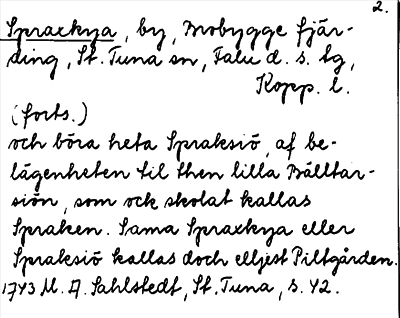 2.
Spraxkya, by, Brobygge fjär-
ding, St. Tuna sn, Falu d. s. lg,
Kopp. l.
(forts.)
och böra heta Spraksiö, af be-
lägenheten til then lilla Bälltar-
siön, som ock skolat kallas
Spraken. Sama Spraxkya eller
Spraksiö kallas doch elljest Piltgården.
1743 M. A. Sahlstedt, St. Tuna, s. 42.